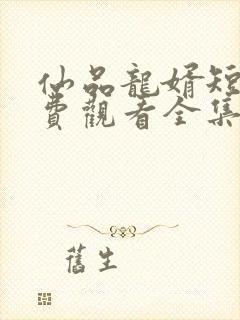 仙品龍婿短
費觀看全集
舊生